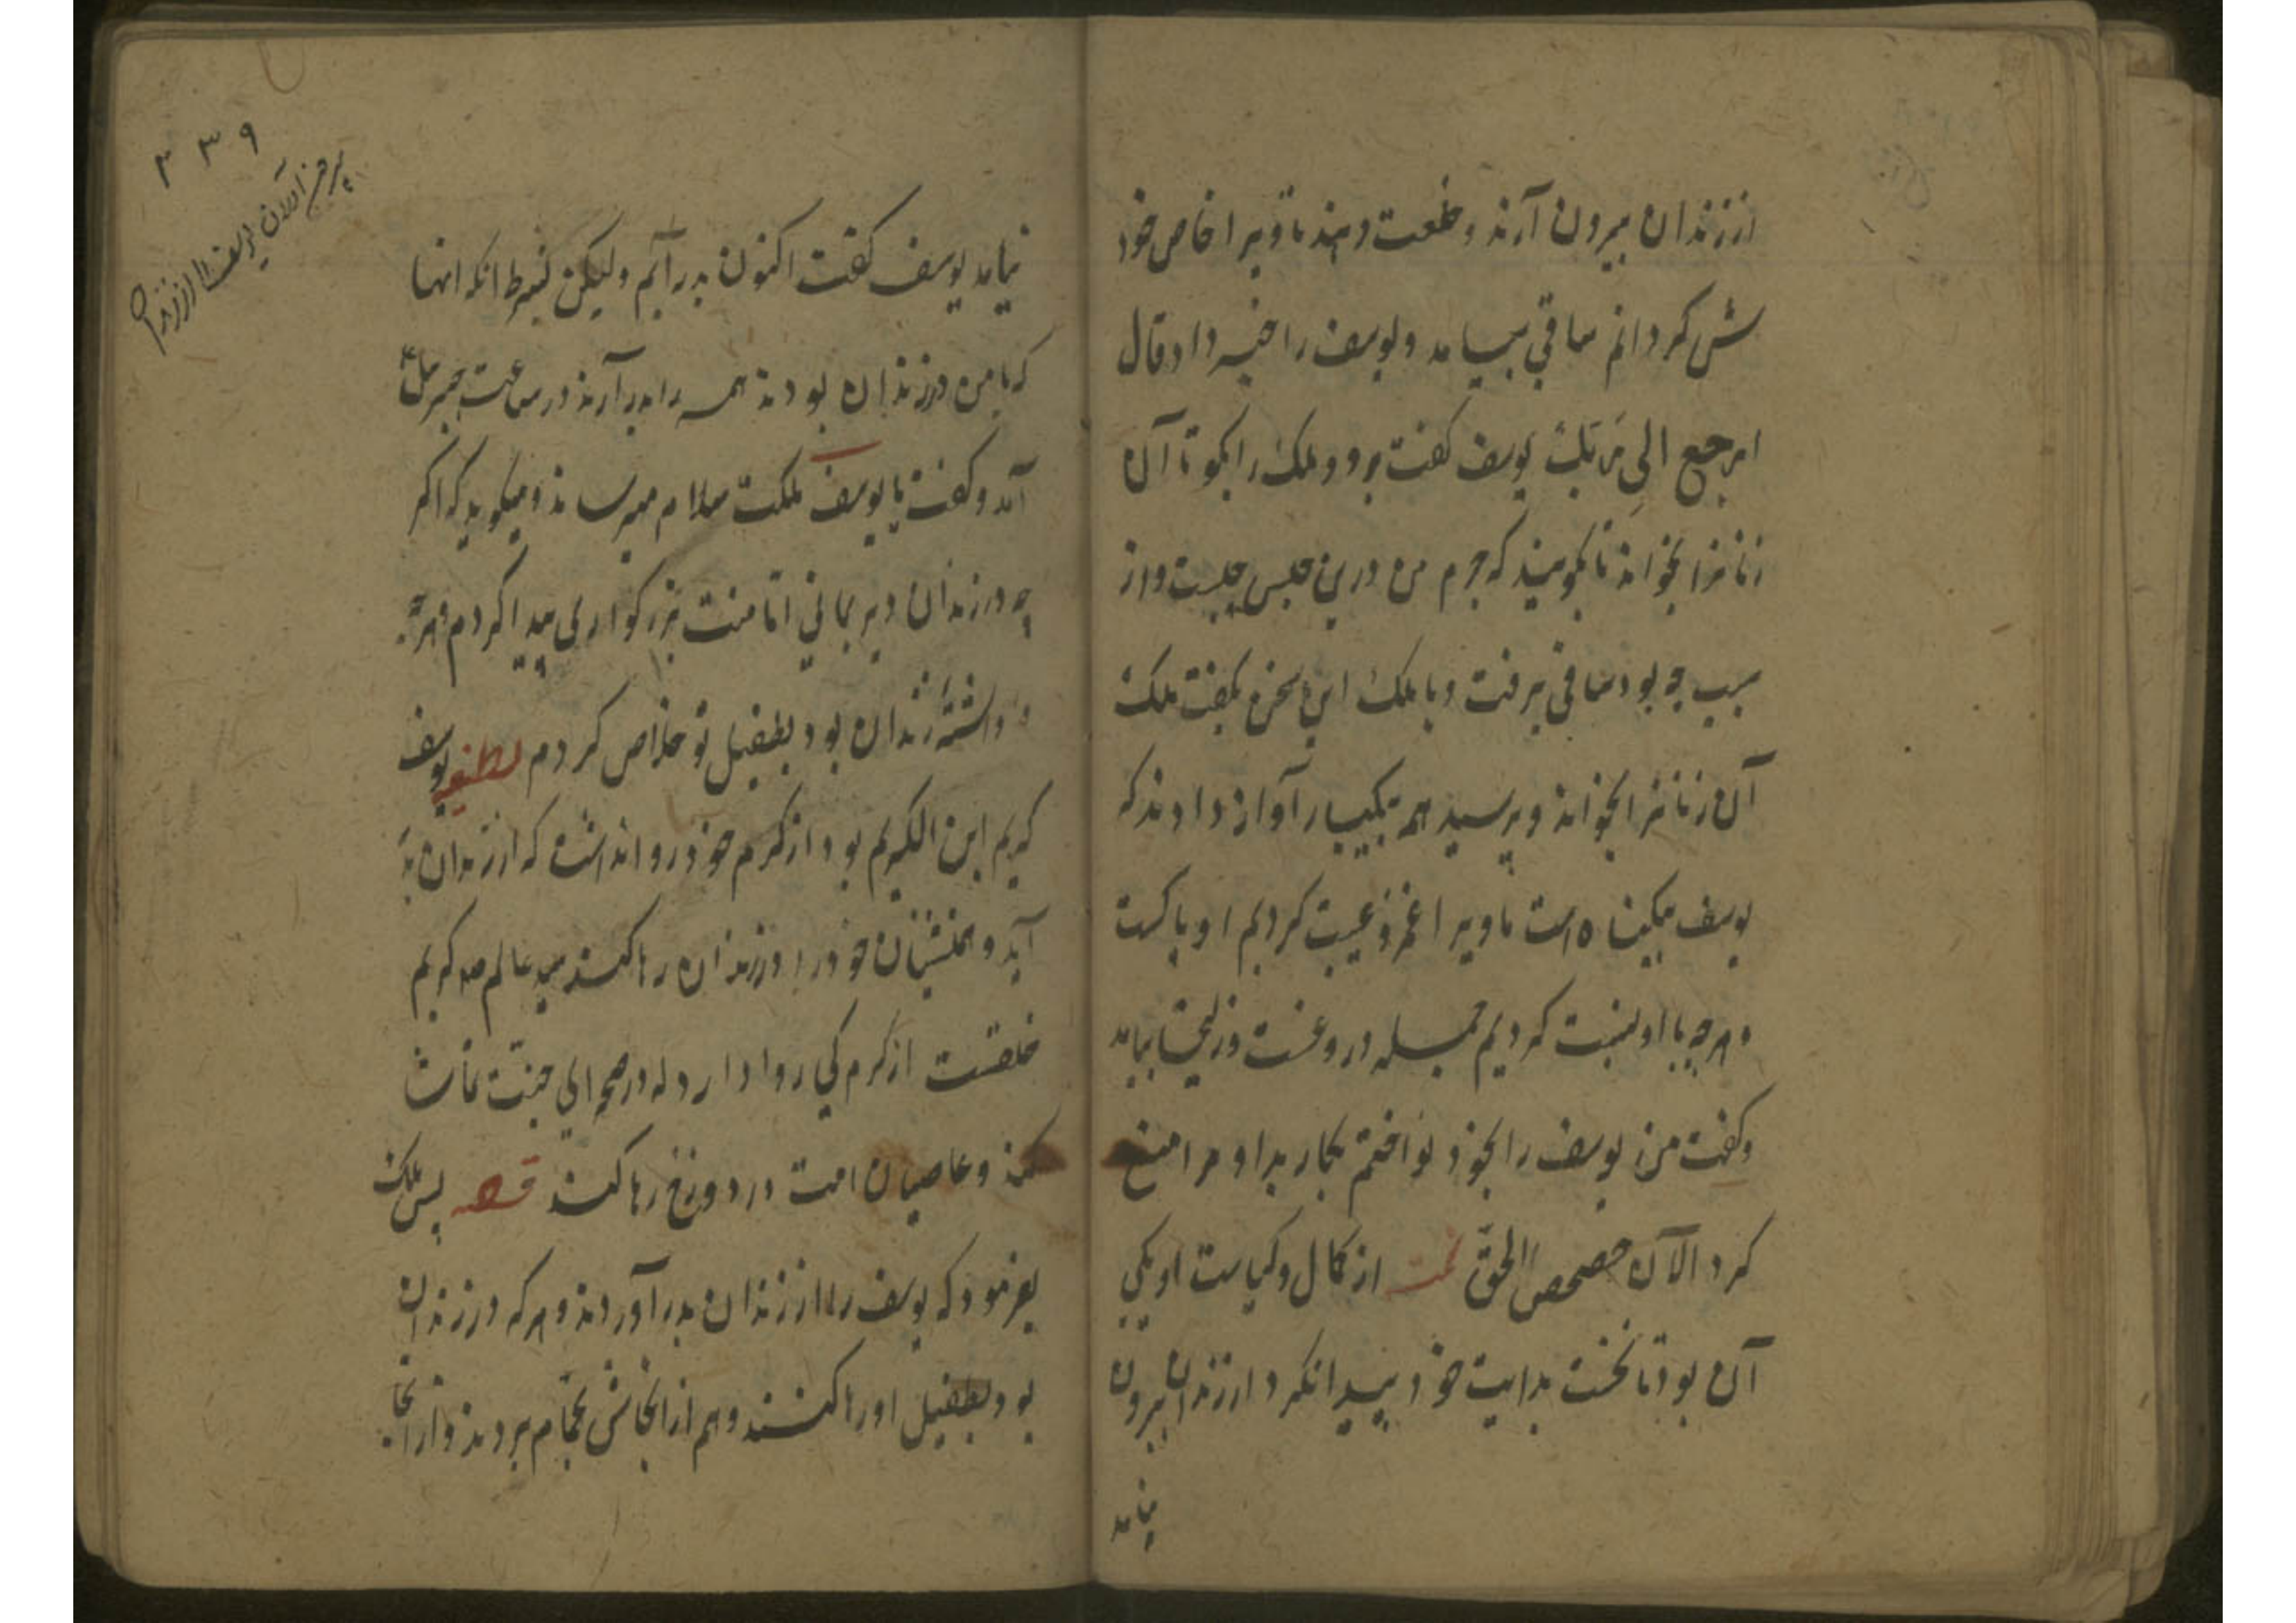 از زندان بیرون آرند و خلعت دهند تا ویرا خاص خود
ش گردانم ساقی بیامد و یوسف را خبر داد قال
ارجع الی ربک یوسف گفت برو و ملک را بگو تا آن
زنانرا بخواند تا بگویند که جرم من درین حبس چیست و از
سبب چه بود ساقی برفت و با ملک این سخن بگفت ملک
آن زنانرا بخواند و پرسید همه بیکبار آواز دادند که
یوسف بیگناه است ما ویرا غمز و عیب کردیم او پاکست
و هرچه با او نسبت کردیم جمله دروغست و زلیخا بیامد
و گفت من یوسف را بخود خواندم بکار بد او مرا منع
کرد الآن حصحص الحق از کمال و کیاست او یکی
آن بود تا نخست بدایت خود پیدا نکرد از زندان بیرون
نیامد
۳۳۹
بیرون آمدن یوسف از زندان
نیامد یوسف گفت اکنون بدر آیم ولیکن بشرط انکه انها
که با من در زندان بودند همه را بدر آرند در ساعت جبرئیل
آمد و گفت یا یوسف ملکت سلام میرساند و میگوید که اگر
چه در زندان دیر بمانی اما منت بزرگواری پیدا کردم و هر که
داشته زندان بود بطفیل تو خلاص کردم لطیفه یوسف
کریم ابن الکریم بود از کرم خود روا نداشت که از زندان بدر
آید و همنشینان خود را در زندان رها کند سید عالم صم که کریم
خلقست از کرم کی روا دارد که در صحرای جنت تماشا
کند و عاصیان امت در دوزخ رها کند قصه پس ملک
بفرمود که یوسف را از زندان بدر آوردند و هر که در زندان
بود بطفیل او رها کنند و هم از انجاش بحمام بردند و از انجا